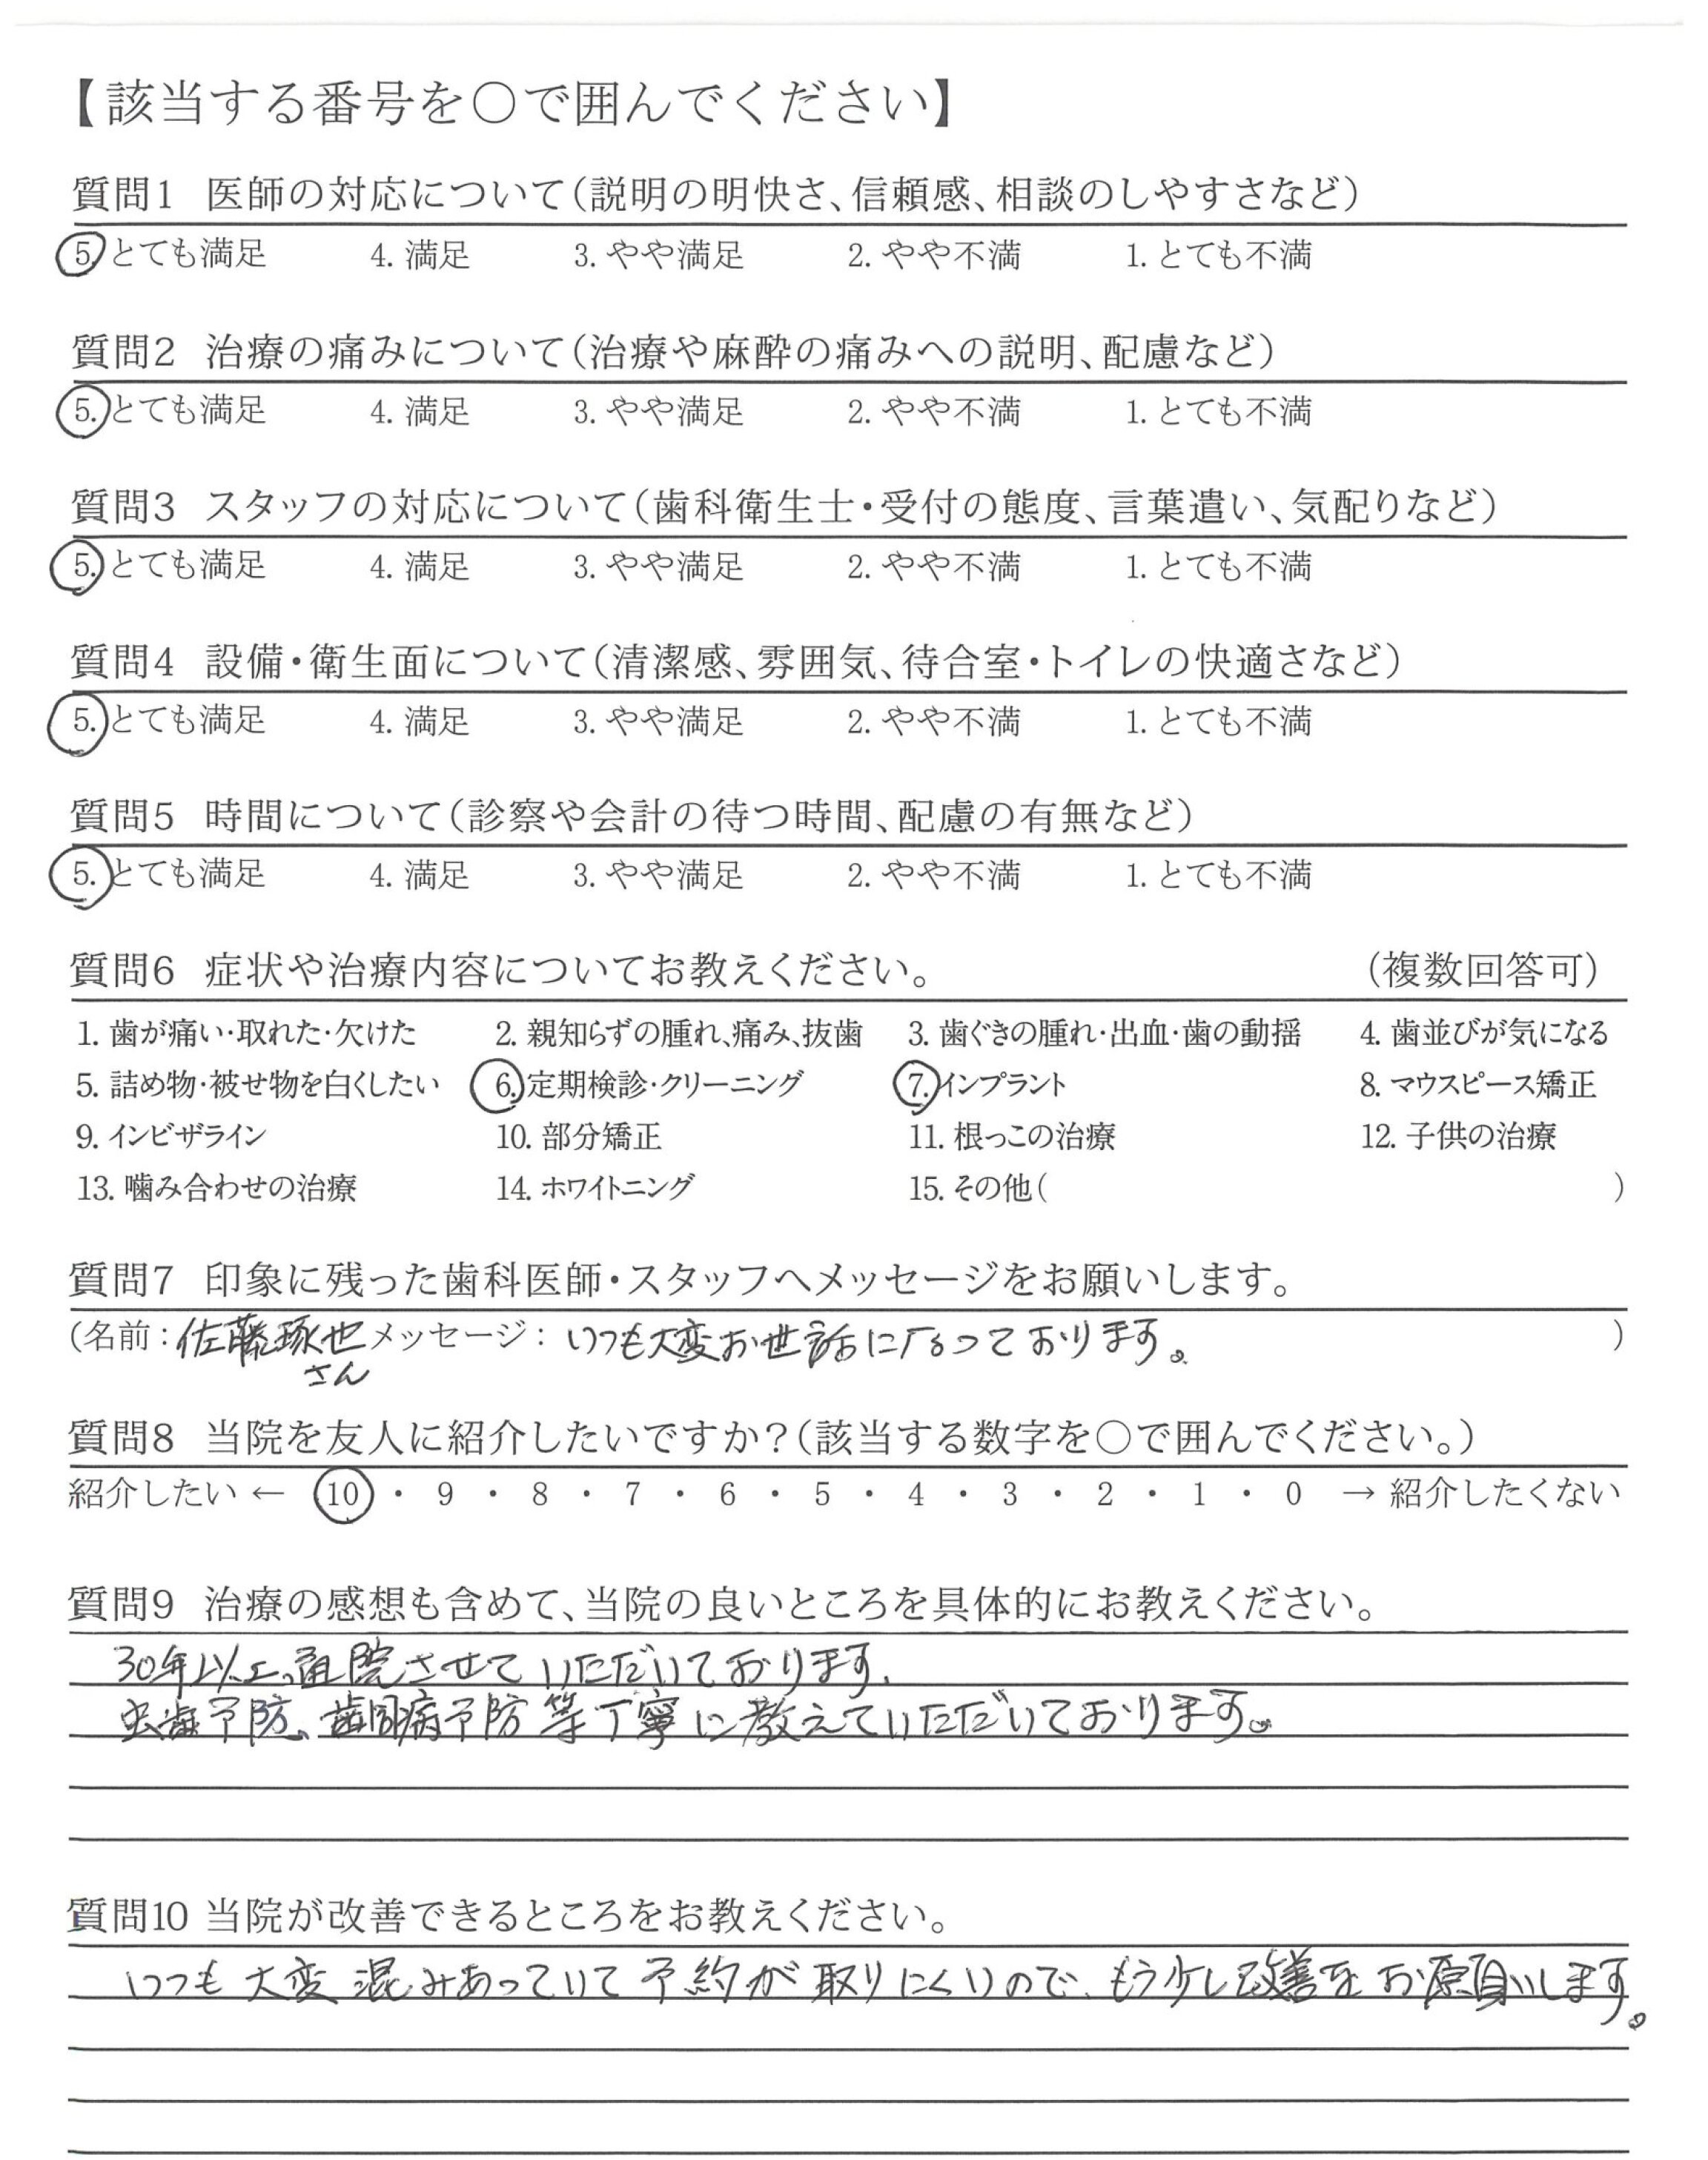 【該当する番号を○で囲んでください】
質問1 医師の対応について(説明の明快さ、信頼感、相談のしやすさなど)
5. とても満足 4. 満足 3. やや満足 2. やや不満 1. とても不満
質問2 治療の痛みについて(治療や麻酔の痛みへの説明、配慮など)
5. とても満足 4. 満足 3. やや満足 2. やや不満 1. とても不満
質問3 スタッフの対応について(歯科衛生士・受付の態度、言葉遣い、気配りなど)
5. とても満足 4. 満足 3. やや満足 2. やや不満 1. とても不満
質問4 設備・衛生面について(清潔感、雰囲気、待合室・トイレの快適さなど)
5. とても満足 4. 満足 3. やや満足 2. やや不満 1. とても不満
質問5 時間について(診察や会計の待つ時間、配慮の有無など)
5. とても満足 4. 満足 3. やや満足 2. やや不満 1. とても不満
質問6 症状や治療内容についてお教えください。 (複数回答可)
1. 歯が痛い・取れた・欠けた 2. 親知らずの腫れ、痛み、抜歯 3. 歯ぐきの腫れ・出血・歯の動揺 4. 歯並びが気になる
5. 詰め物・被せ物を白くしたい 6. 定期検診・クリーニング 7. インプラント 8. マウスピース矯正
9. インビザライン 10. 部分矯正 11. 根っこの治療 12. 子供の治療
13. 噛み合わせの治療 14. ホワイトニング 15. その他( )
質問7 印象に残った歯科医師・スタッフへメッセージをお願いします。
(名前:佐藤琢也 メッセージ:いつも大変お世話になっております。 )
さん
質問8 当院を友人に紹介したいですか?(該当する数字を○で囲んでください。)
紹介したい ← 10 ・ 9 ・ 8 ・ 7 ・ 6 ・ 5 ・ 4 ・ 3 ・ 2 ・ 1 ・ 0 → 紹介したくない
質問9 治療の感想も含めて、当院の良いところを具体的にお教えください。
30年以上、通院させていただいております。
虫歯予防、歯周病予防等丁寧に教えていただいております。
質問10 当院が改善できるところをお教えください。
いつも大変混みあっていて予約が取りにくいので、もう少し改善をお願いします。